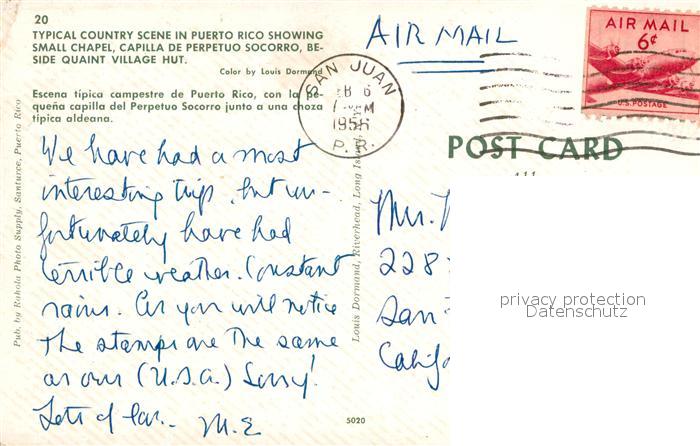 20
TYPICAL COUNTRY SCENE IN PUERTO RICO SHOWING
SMALL CHAPEL, CAPILLA DE PERPETUO SOCORRO, BE-
SIDE QUAINT VILLAGE HUT.
Color by Louis Dormand
Escena típica campestre de Puerto Rico, con la pe-
queña capilla del Perpetuo Socorro junto a una choza
típica aldeana.
Pub. by Rahola Photo Supply, Santurce, Puerto Rico
We have had a most
interesting trip, but un-
fortunately have had
terrible weather. Constant
rains. As you will notice
the stamps are the same
as our (U.S.A.) Sorry!
Lots of M.E
5020
Louis Dormand, Riverhead, Long Island,
SAN JUAN
1956
P.R.
AIR MAIL
AIR MAIL
6¢
U.S. POSTAGE
POST CARD
Mr.
228
San
Calif
privacy protection
Datenschutz